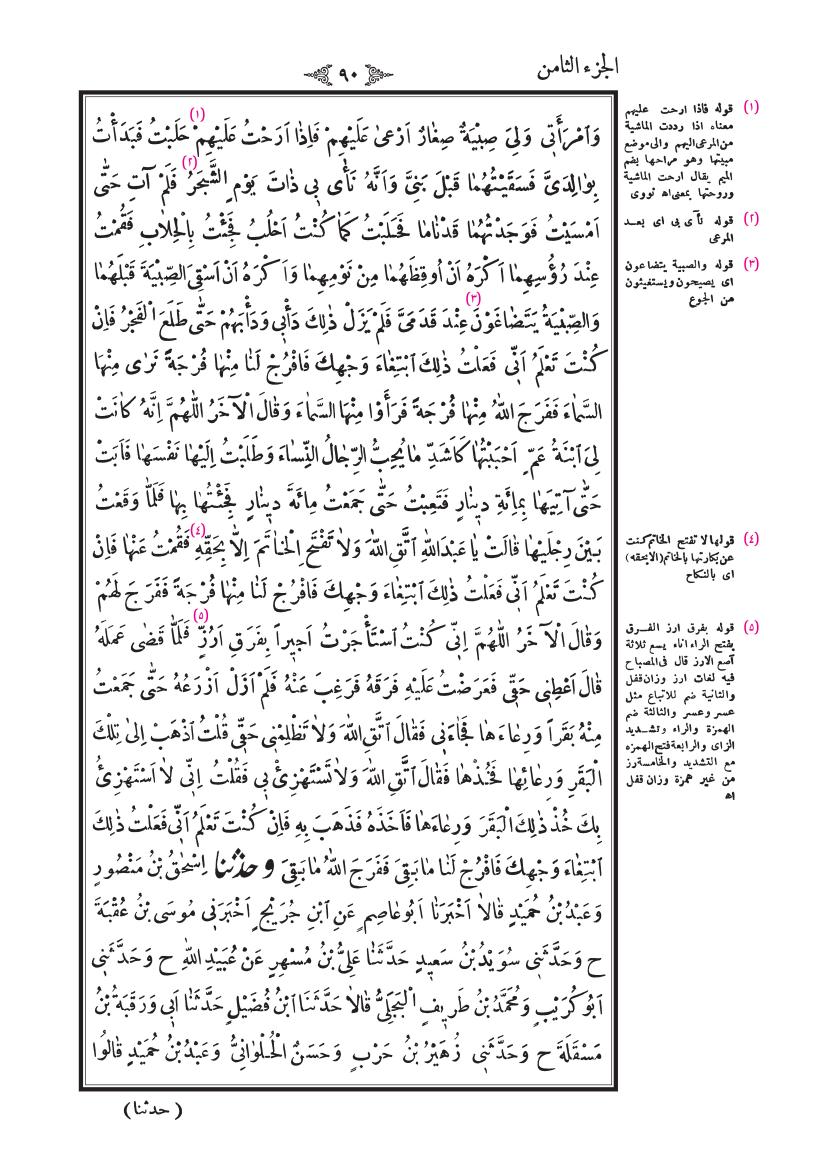 الجزء الثامن
٩٠
وَامْرَأَتِي وَلِيَ صِبْيَةٌ صِغَارٌ أَرْعَى عَلَيْهِمْ فَإِذَا أَرَحْتُ عَلَيْهِمْ (١) حَلَبْتُ فَبَدَأْتُ
بِوَالِدَيَّ فَسَقَيْتُهُمَا قَبْلَ بَنِيَّ وَأَنَّهُ نَأَى بِي (٢) ذَاتَ يَوْمٍ الشَّجَرُ فَلَمْ آتِ حَتَّى
أَمْسَيْتُ فَوَجَدْتُهُمَا قَدْ نَامَا فَحَلَبْتُ كَمَا كُنْتُ أَحْلُبُ فَجِئْتُ بِالْحِلَابِ فَقُمْتُ
عِنْدَ رُؤُسِهِمَا أَكْرَهُ أَنْ أُوقِظَهُمَا مِنْ نَوْمِهِمَا وَأَكْرَهُ أَنْ أَسْقِيَ الصِّبْيَةَ قَبْلَهُمَا
وَالصِّبْيَةُ يَتَضَاغَوْنَ (٣) عِنْدَ قَدَمَيَّ فَلَمْ يَزَلْ ذٰلِكَ دَأْبِي وَدَأْبَهُمْ حَتَّى طَلَعَ الْفَجْرُ فَإِنْ
كُنْتَ تَعْلَمُ أَنِّي فَعَلْتُ ذٰلِكَ ابْتِغَاءَ وَجْهِكَ فَافْرُجْ لَنَا مِنْهَا فُرْجَةً نَرَى مِنْهَا
السَّمَاءَ فَفَرَجَ اللهُ مِنْهَا فُرْجَةً فَرَأَوْا مِنْهَا السَّمَاءَ وَقَالَ الْآخَرُ اللّٰهُمَّ إِنَّهُ كَانَتْ
لِيَ ابْنَةُ عَمٍّ أَحْبَبْتُهَا كَأَشَدِّ مَا يُحِبُّ الرِّجَالُ النِّسَاءَ وَطَلَبْتُ إِلَيْهَا نَفْسَهَا فَأَبَتْ
حَتَّى آتِيَهَا بِمِائَةِ دِينَارٍ فَتَعِبْتُ حَتَّى جَمَعْتُ مِائَةَ دِينَارٍ فَجِئْتُهَا بِهَا فَلَمَّا وَقَعْتُ
بَيْنَ رِجْلَيْهَا قَالَتْ يَا عَبْدَ اللهِ اتَّقِ اللهَ وَلَا تَفْتَحِ الْخَاتَمَ إِلَّا بِحَقِّهِ (٤) فَقُمْتُ عَنْهَا فَإِنْ
كُنْتَ تَعْلَمُ أَنِّي فَعَلْتُ ذٰلِكَ ابْتِغَاءَ وَجْهِكَ فَافْرُجْ لَنَا مِنْهَا فُرْجَةً فَفَرَجَ لَهُمْ
وَقَالَ الْآخَرُ اللّٰهُمَّ إِنِّي كُنْتُ اسْتَأْجَرْتُ أَجِيرًا بِفَرَقِ أَرُزٍّ (٥) فَلَمَّا قَضَى عَمَلَهُ
قَالَ أَعْطِنِي حَقِّي فَعَرَضْتُ عَلَيْهِ فَرَقَهُ فَرَغِبَ عَنْهُ فَلَمْ أَزَلْ أَزْرَعُهُ حَتَّى جَمَعْتُ
مِنْهُ بَقَرًا وَرِعَاءَهَا فَجَاءَنِي فَقَالَ اتَّقِ اللهَ وَلَا تَظْلِمْنِي حَقِّي قُلْتُ اذْهَبْ إِلَى تِلْكَ
الْبَقَرِ وَرِعَائِهَا فَخُذْهَا فَقَالَ اتَّقِ اللهَ وَلَا تَسْتَهْزِئْ بِي فَقُلْتُ إِنِّي لَا أَسْتَهْزِئُ
بِكَ خُذْ ذٰلِكَ الْبَقَرَ وَرِعَاءَهَا فَأَخَذَهُ فَذَهَبَ بِهِ فَإِنْ كُنْتَ تَعْلَمُ أَنِّي فَعَلْتُ ذٰلِكَ
ابْتِغَاءَ وَجْهِكَ فَافْرُجْ لَنَا مَا بَقِيَ فَفَرَجَ اللهُ مَا بَقِيَ وحدثنا إِسْحٰقُ بْنُ مَنْصُورٍ
وَعَبْدُ بْنُ حُمَيْدٍ قَالَا أَخْبَرَنَا أَبُو عَاصِمٍ عَنِ ابْنِ جُرَيْجٍ أَخْبَرَنِي مُوسَى بْنُ عُقْبَةَ
ح وَحَدَّثَنِي سُوَيْدُ بْنُ سَعِيدٍ حَدَّثَنَا عَلِيُّ بْنُ مُسْهِرٍ عَنْ عُبَيْدِ اللهِ ح وَحَدَّثَنِي
أَبُو كُرَيْبٍ وَمُحَمَّدُ بْنُ طَرِيفٍ الْبَجَلِيُّ قَالَا حَدَّثَنَا ابْنُ فُضَيْلٍ حَدَّثَنَا أَبِي وَرَقَبَةُ بْنُ
مَسْقَلَةَ ح وَحَدَّثَنِي زُهَيْرُ بْنُ حَرْبٍ وَحَسَنٌ الْحُلْوَانِيُّ وَعَبْدُ بْنُ حُمَيْدٍ قَالُوا
(حدثنا)
(١) قوله فاذا ارحت عليهم
معناه اذا رددت الماشية
من المرعى اليهم والى موضع
مبيتها وهو مراحها بضم
الميم يقال ارحت الماشية
وروحتها بمعنى اه نووى
(٢) قوله نآى بى اى بعد
المرعى
(٣) قوله والصبية يتضاغون
اى يصيحون ويستغيثون
من الجوع
(٤) قولها لا تفتح الخاتم كنت
عن بكارتها بالخاتم (الا بحقه)
اى بالنكاح
(٥) قوله بفرق ارز الفرق
بفتح الراء اناء يسع ثلاثة
آصع الارز قال فى المصباح
فيه لغات ارز وزان قفل
والثانية ضم للاتباع مثل
عسر وعسر والثالثة ضم
الهمزة والراء وتشديد
الزاى والرابعة فتح الهمزه
مع التشديد والخامسة رز
من غير همزة وزان قفل
اه